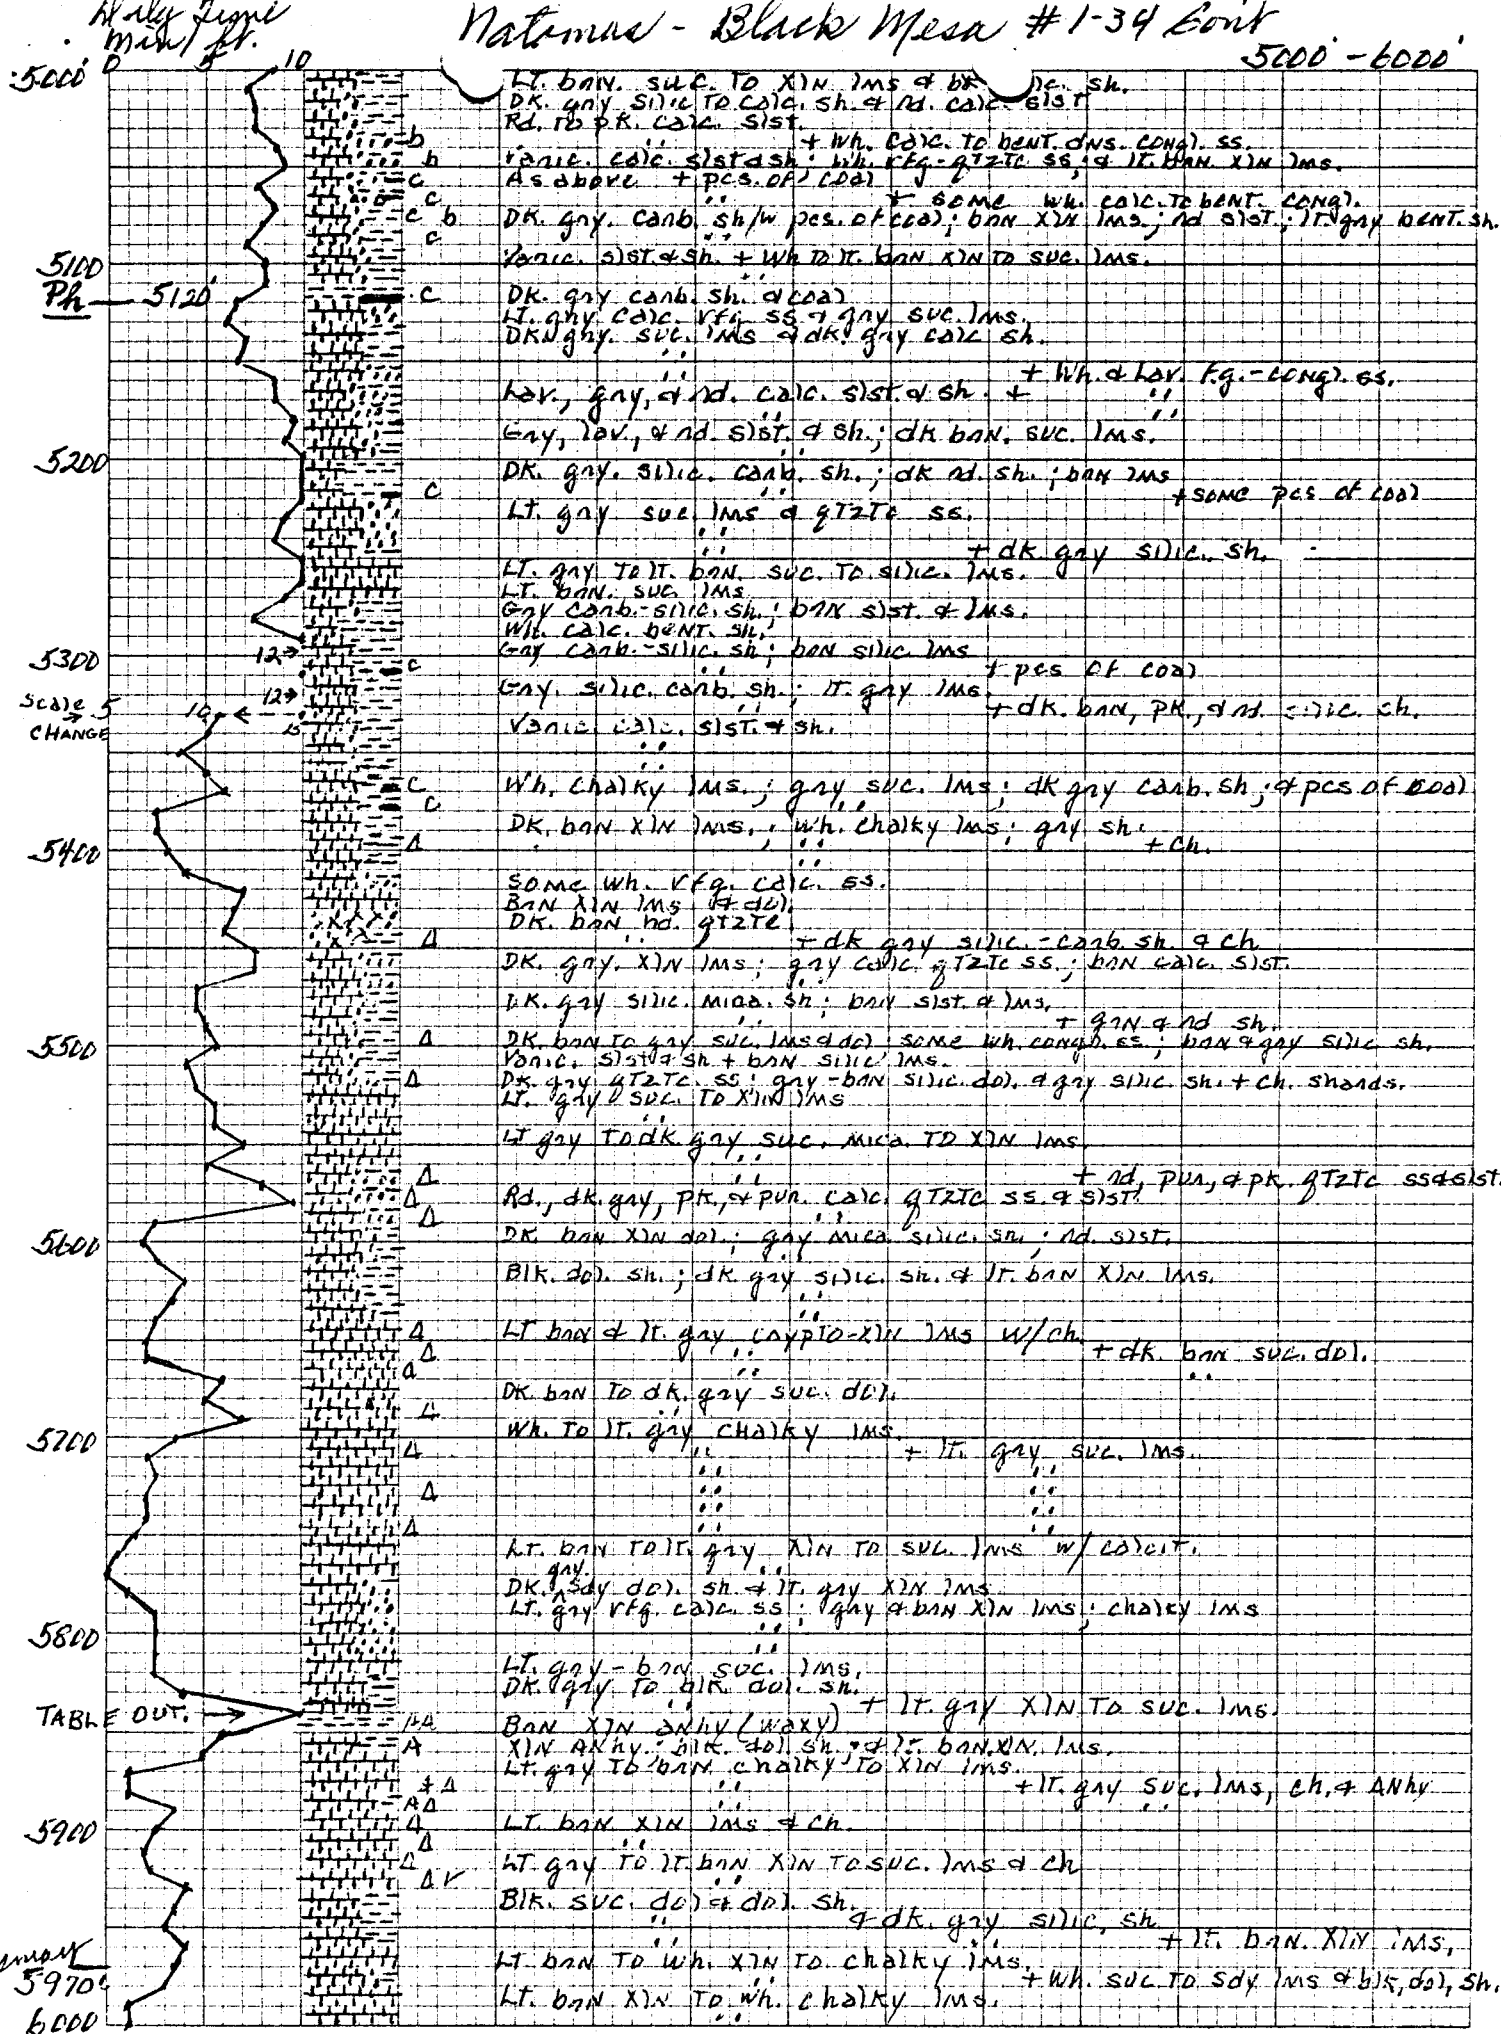 Drlg Time
Min/ft.
Natomas - Black Mesa #1-34 Cont
5000' - 6000'
5000' 0 5 10
LT. brn. suc. to xln lms & blk sh.
Dk. gry silic to calc. sh. & rd. calc. slst
Rd. to pk. calc. slst.
" + wh. calc. to bent. dns. congl. ss.
b
b Varic. calc. slst & sh; wh. vfg-qtztc ss; & lt. brn xln lms.
c As above + pcs. of coal
c " + some wh. calc. to bent. congl.
c b Dk. gry. carb. sh/w pcs. of coal; brn xln lms; rd slst; lt gry bent. sh.
c "
5100 Varic. slst & sh. + wh to lt. brn xln to suc. lms.
"
Ph 5120' c Dk. gry carb. sh. & coal
Lt. gry calc. vfg ss & gry suc. lms.
Dk gry. suc. lms & dk. gry calc sh.
" + wh. & lav. fg.-congl. ss.
Lav., gry, & rd. calc. slst. & sh. + "
" "
Gry, lav., & rd. slst. & sh.; dk brn. suc. lms.
5200 "
Dk. gry. silic. carb. sh.; dk rd. sh.; brn lms
c " + some pcs of coal
Lt. gry suc. lms & qtztc ss.
"
" + dk gry silic. sh.
LT. gry to lt. brn. suc. to silic. lms.
LT. brn. suc. lms
Gry carb.-silic. sh; brn slst. & lms.
Wh. calc. bent. sh.
5300 12→ Gry carb.-silic. sh; brn silic lms
c " + pcs of coal
12→ Gry. silic. carb. sh.; lt. gry lms.
Scale 5 10 ← + dk. brn, pk., & rd. silic. sh.
CHANGE Varic. calc. slst. & sh.
"
c Wh. chalky lms.; gry suc. lms; dk gry carb. sh; & pcs of coal
c "
Dk. brn xln lms.; wh. chalky lms; gry sh.
5400 Δ " + ch.
"
Some wh. vfg. calc. ss.
Brn xln lms & dol.
Dk. brn hd. qtztc
Δ " + dk gry silic.-carb. sh. & ch
Dk. gry. xln lms; gry calc. qtztc ss; brn calc. slst.
Dk. gry silic. mica. sh; brn slst & lms.
" + grn & rd sh.
5500 Δ Dk. brn to gry suc. lms & dol; some wh. congl. ss; brn & gry silic sh.
Varic. slst & sh + brn silic lms.
Δ Dk. gry qtztc. ss; gry-brn silic. dol. & gry silic. sh. + ch. shards.
Lt. gry suc. to xln lms
"
Lt gry to dk gry suc. mica. to xln lms.
"
Δ " + rd, pur, & pk. qtztc ss & slst.
Δ Rd., dk. gry, pk., & pur. calc. qtztc ss. & slst.
Δ "
5600 Dk. brn xln dol.; gry mica silic. sh.; rd. slst.
"
Blk. dol. sh.; dk gry silic. sh. & lt. brn xln. lms.
"
"
Δ Lt brn & lt. gry crypto-xln lms w/ch.
Δ " + dk. brn suc. dol.
Δ " "
Dk brn to dk. gry suc. dol.
Δ "
5700 Wh. to lt. gry chalky lms.
Δ " + lt. gry suc. lms.
" "
Δ " "
" "
Δ " "
Lt. brn to lt. gry xln to suc. lms w/ calcit.
"
Dk. gry sdy dol. sh. & lt. gry xln lms
Lt. gry vfg. calc. ss; gry & brn xln lms; chalky lms
5800 "
"
Lt. gry - brn suc. lms.
Dk. gry to blk dol. sh.
TABLE OUT. → " + lt. gry xln to suc. lms.
AA Brn xln anhy (waxy)
A Xln anhy; blk. dol. sh & lt. brn. xln. lms.
Lt. gry to brn chalky to xln lms.
Δ " + lt. gry suc. lms, ch, & anhy
AΔ " "
5900 Δ Lt. brn xln lms & ch.
Δ "
Δ Lt gry to lt brn xln to suc. lms & ch
Δ "
Blk. suc. dol & dol. sh.
" & dk. gry silic. sh
" + lt. brn. xln lms.
5970' Lt brn to wh. xln to chalky lms.
" + wh. suc to sdy lms & blk. dol. sh.
Lt. brn xln to wh. chalky lms.
6000 "